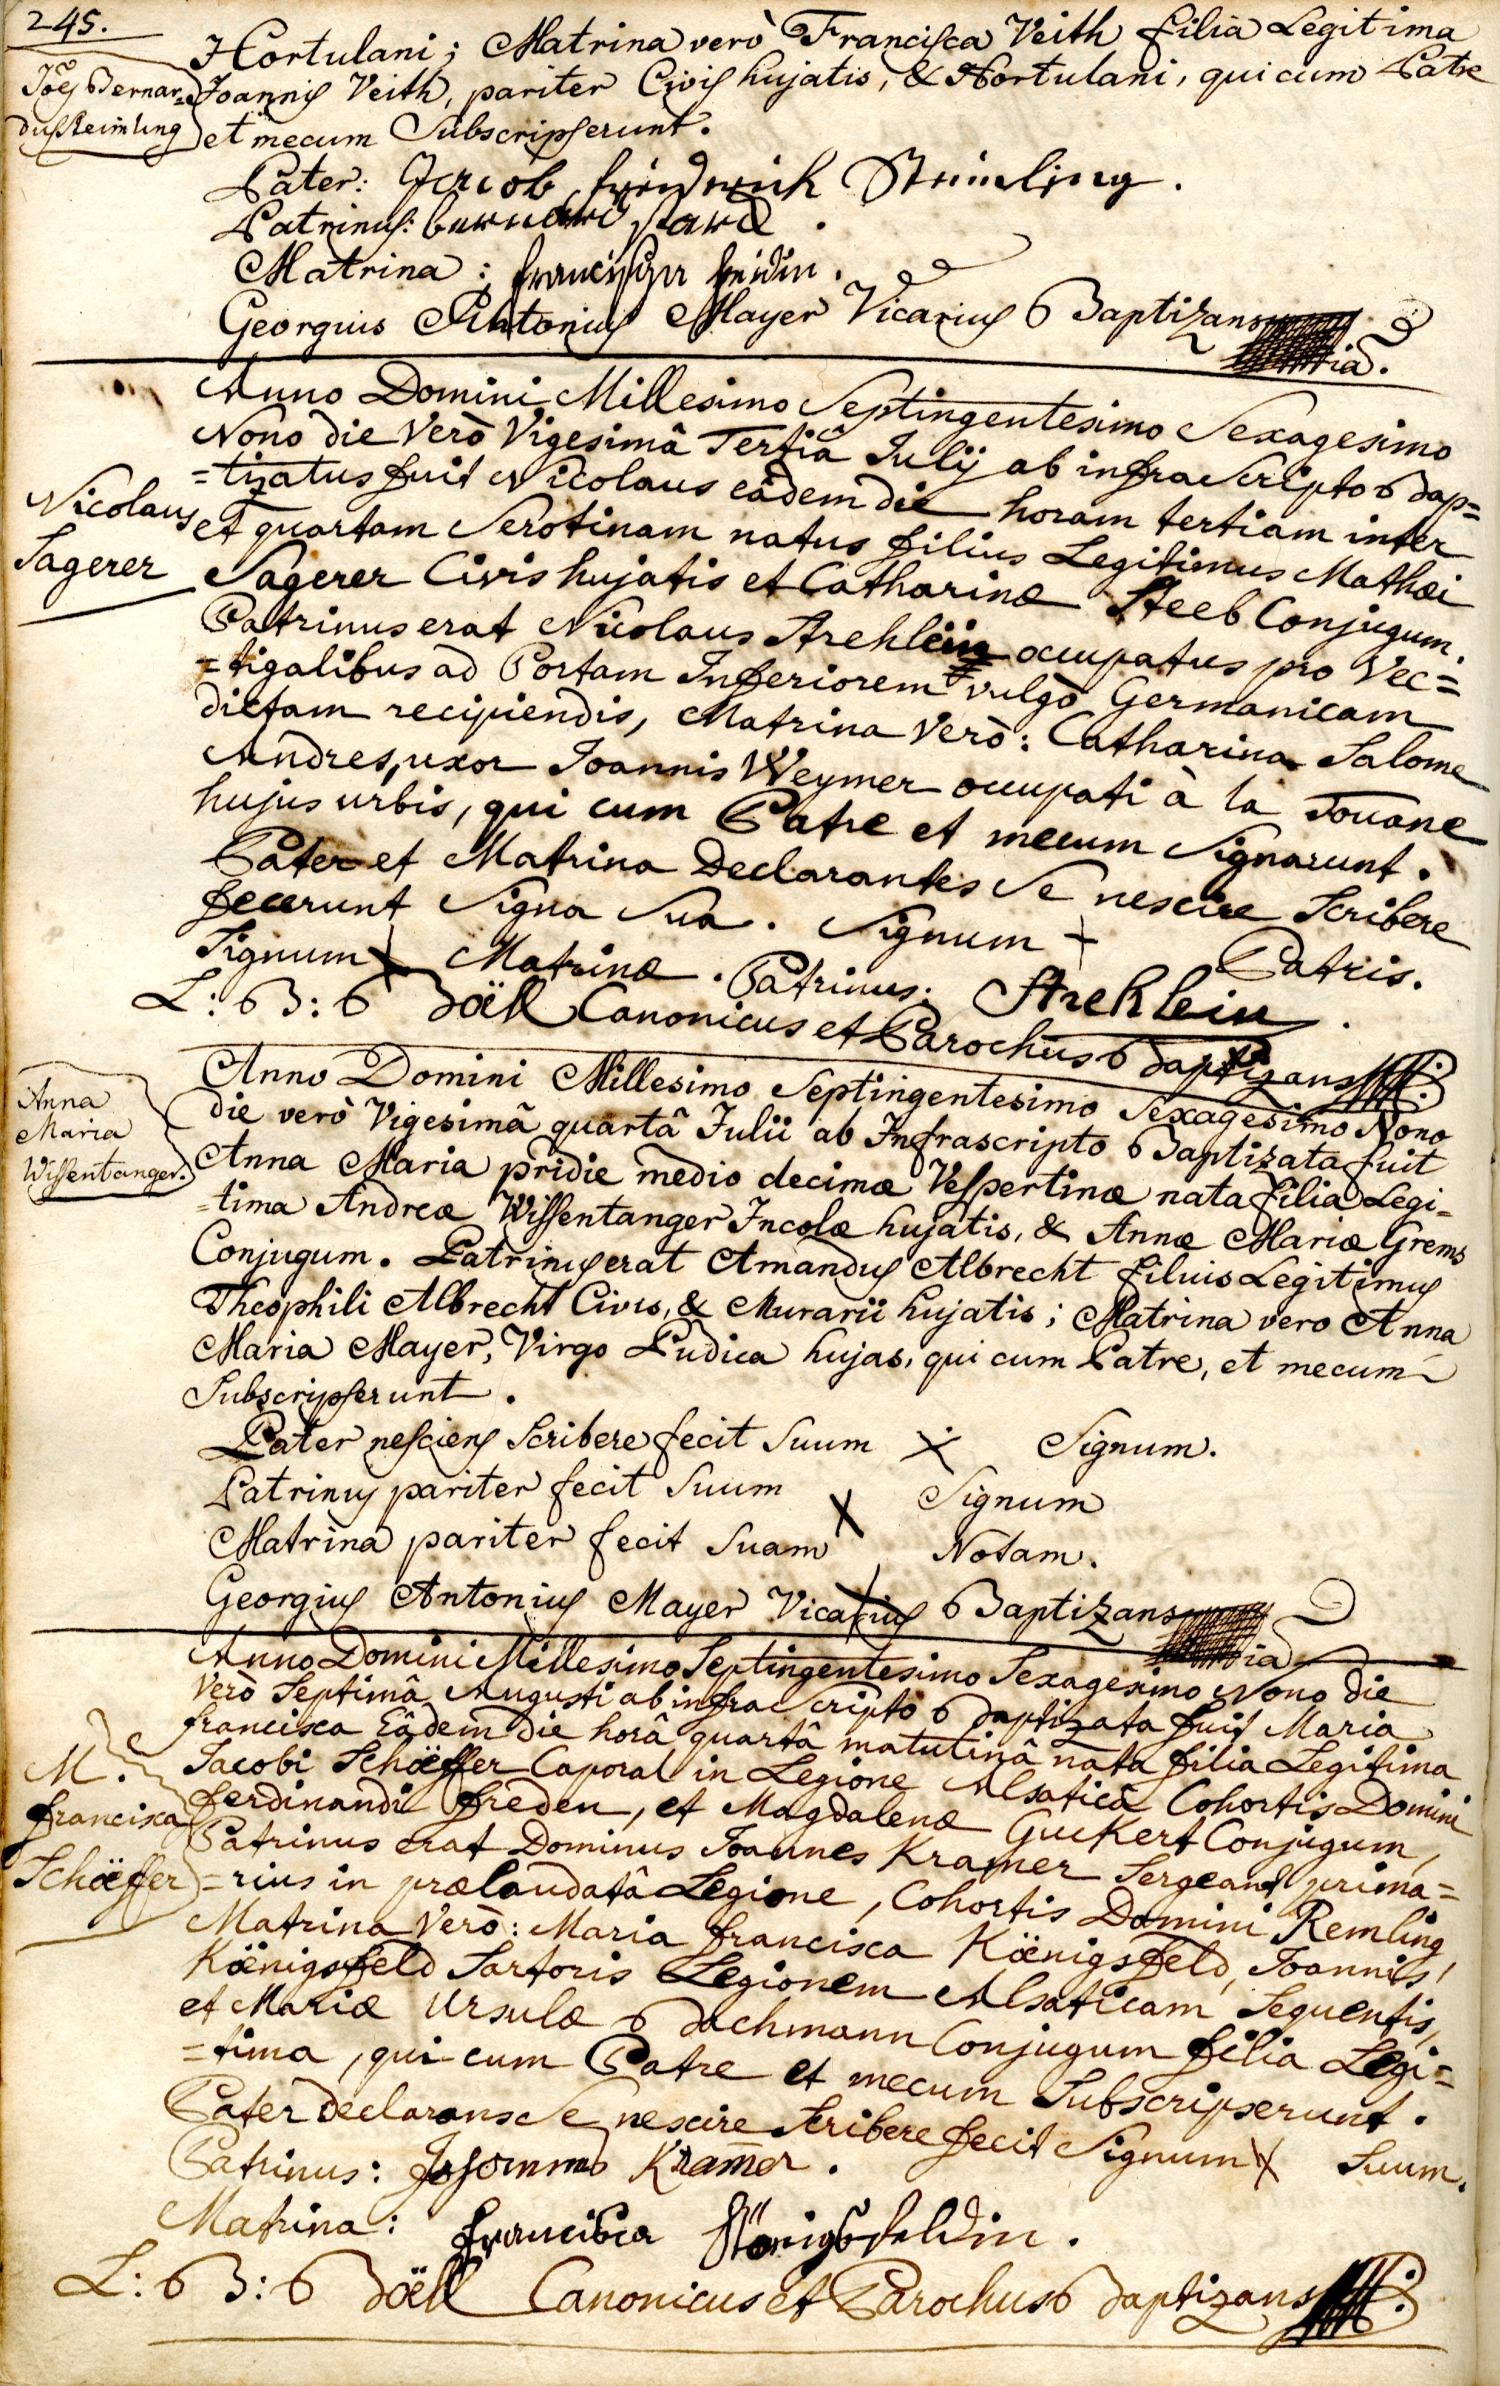 245.
Hortulani; Matrina verò Francisca Veith filia Legitima
Joes Bernar=
dus Reimling
Joannis Veith, pariter Civis hujatis, & Hortulani, qui cum Patre
et mecum Subscripserunt.
Pater: Jacob friedrich
Patrinus:
Matrina:
Georguis Antonius Mayer Vicarius Baptizans
Anno Domini Millesimo Septingentesimo Sexagesimo
Nono die Verò Vigesimâ Tertiâ Julij ab infra Scripto Bap=
=tizatus fuit Nicolaus eâdem die horam tertiam inter
Nicolaus
Sagerer
et quartam Serotinam natus filius Legitimus Mathæi
Sagerer Civis hujatis et Catharinæ Steeb Conjugum.
Patrinus erat Nicolaus Strehlein occupatus pro Vec=
=tigalibus ad Portam Inferiorem vulgò Germanicam
dictam recipiendis, Matrina Verò: Catharina Salome
Andres, uxor Joannis Weymer occupati à la Douane
hujus urbis, qui cum Patre et mecum Signarunt.
Pater et Matrina Declarantes Se nescire Scribere
fecerunt Signa Sua. Signum + Patris.
Signum + Matrinæ. Patrinus: Strehlein.
L: B: Böell Canonicus et Parochus Baptizans
Anna
Maria
Wissentanger.
Anno Domini Millesimo Septingentesimo Sexagesimo Nono
die verò Vigesimâ quartâ Julii ab Infrascripto Baptizata fuit
Anna Maria pridie medio decimæ Vespertinæ nata filia Legi-
=tima Andreæ Wissentanger Incolæ hujatis, & Annæ Mariæ Grems
Conjugum. Patrinus erat Amandus Albrecht filuis Legitimus
Theophili Albrecht Civis, & Murarii hujatis; Matrina vero Anna
Maria Mayer, Virgo Pudica hujas, qui cum Patre, et mecum
Subscripserunt.
Pater nesciens Scribere fecit Suum X Signum.
Patrinus pariter fecit Suum X Signum
Matrina pariter fecit Suam X Notam.
Georgius Antonius Mayer Vicarius Baptizans
Anno Domini Millesimo Septingentesimo Sexagesimo Nono die
Verò Septimâ Augusti ab infra Scripto Baptizata fuit Maria
francisca Eâdem die horâ quartâ matutinâ nata filia Legitima
M.
francisca
Schœffer
Jacobi Schœffer Caporal in Legione Alsaticâ Cohortis Domini
ferdinandi freden, et Magdalenæ Guckert Conjugum,
Patrinus erat Dominus Joannes Kramer Sergeant prima=
=rius in prælaudatâ Legione, Cohortis Domini Remling,
Matrina Verò: Maria francisca Kœnigsfeld, Joannis
Kœnigsfeld Sartoris Legionem Alsaticam Sequentis,
et Mariæ Ursulæ Bachmann Conjugum filia Legi=
=tima, qui cum Patre et mecum Subscripserunt.
Pater declarans Se nescire Scribere fecit Signum + Suum.
Patrinus: Johannes Kramer.
Matrina: francisca Königsfeldin.
L: B: Böell Canonicus et Parochus Baptizans